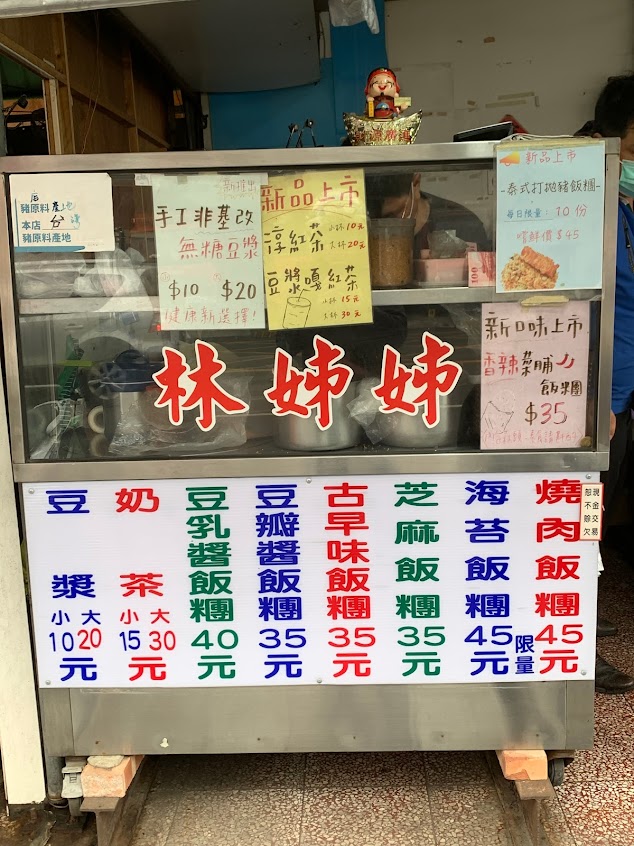 本店
豬原料產地
台灣
豬原料產地
新推出
手工非基改
無糖豆漿
$10 $20
健康新選擇!
新品上市
醇紅茶
小杯10元
大杯20元
豆漿嘪紅茶
小杯15元
大杯30元
新品上市
-泰式打拋豬飯糰-
每日限量: 10份
嚐鮮價$45
新口味上市
香辣菜脯
飯糰
$35
林姊姊
豆漿
小 大
10 20
元
奶茶
小 大
15 30
元
豆乳醬飯糰
40
元
豆瓣醬飯糰
35
元
古早味飯糰
35
元
芝麻飯糰
35
元
海苔飯糰
45
元
限量
燒肉飯糰
45
元
現金交易
恕不賒欠